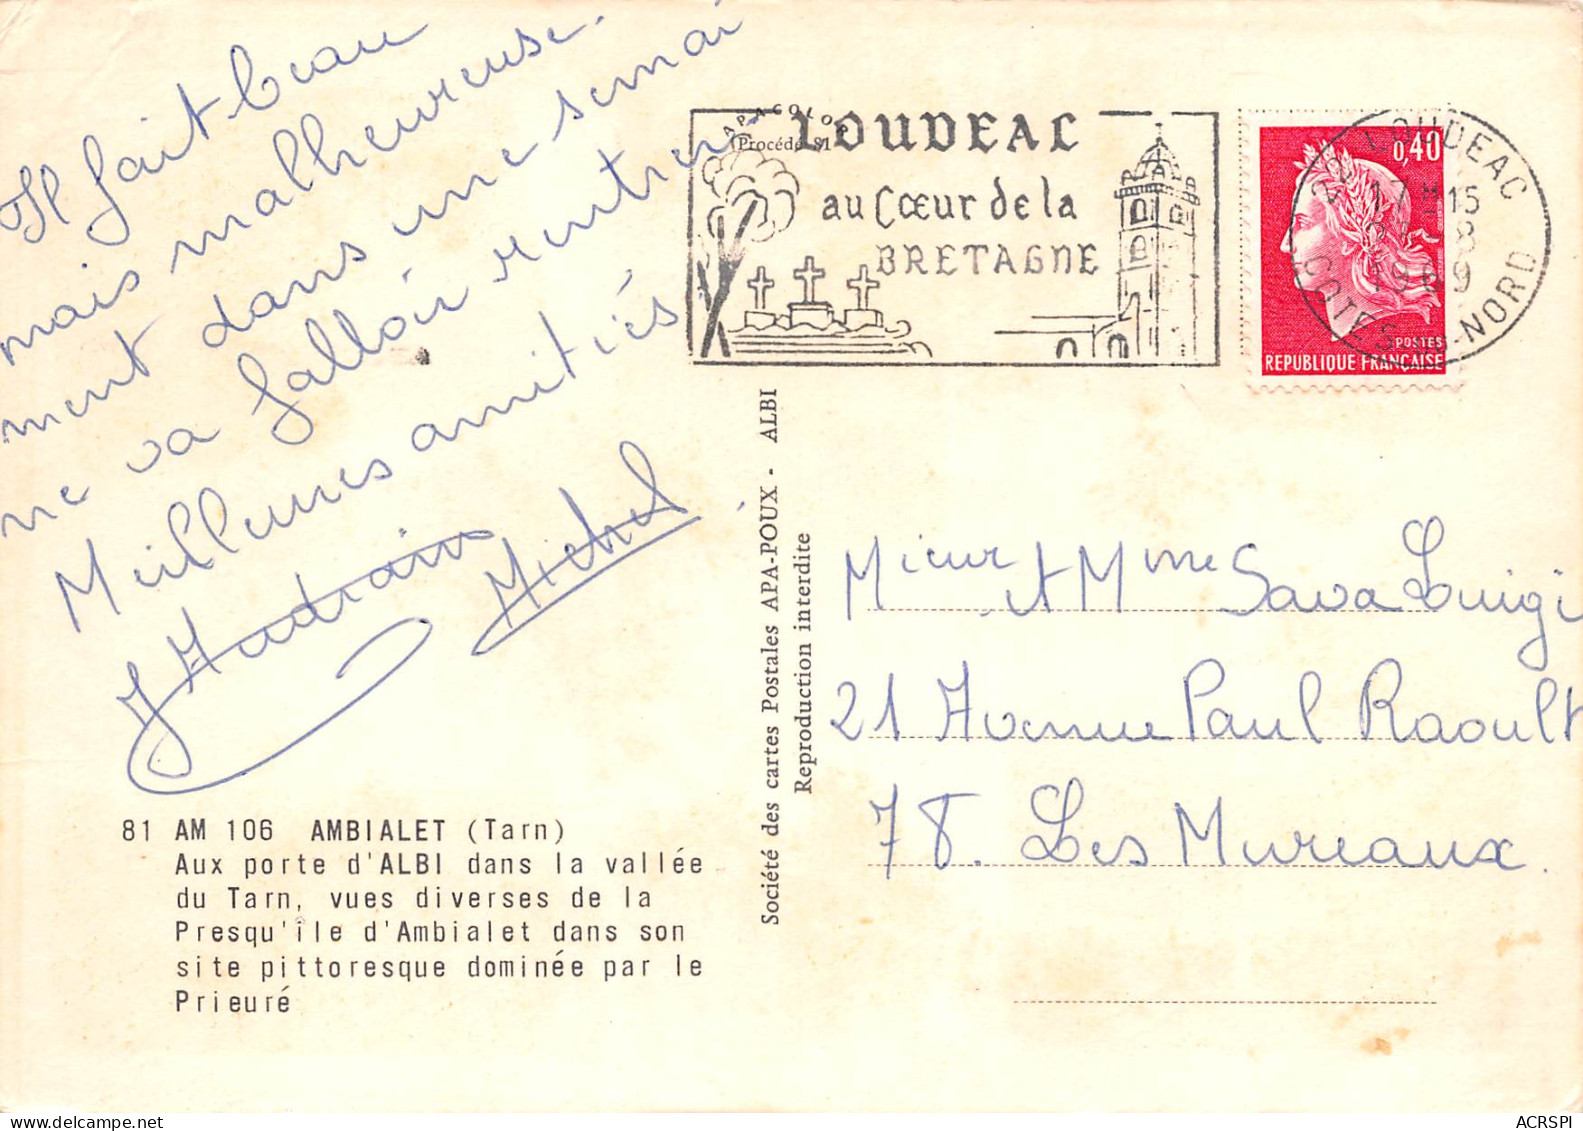 Il fait beau
mais malheureuse-
ment dans une semai
ne va falloir rentrer.
Meilleures amitiés
Michel
81 AM 106 AMBIALET (Tarn)
Aux porte d'ALBI dans la vallée
du Tarn, vues diverses de la
Presqu'île d'Ambialet dans son
site pittoresque dominée par le
Prieuré
Société des cartes Postales APA-POUX - ALBI
Reproduction interdite
APACOLOR
Procédé 81
LOUDEAC
au Cœur de la
BRETAGNE
0,40
POSTES
REPUBLIQUE FRANÇAISE
22 LOUDEAC
17 H 15
8
1969
COTES-DU-NORD
Mieur et Mme Sava Luigi
21 Avenue Paul Raoult
78. Les Mureaux.
ACRSPI